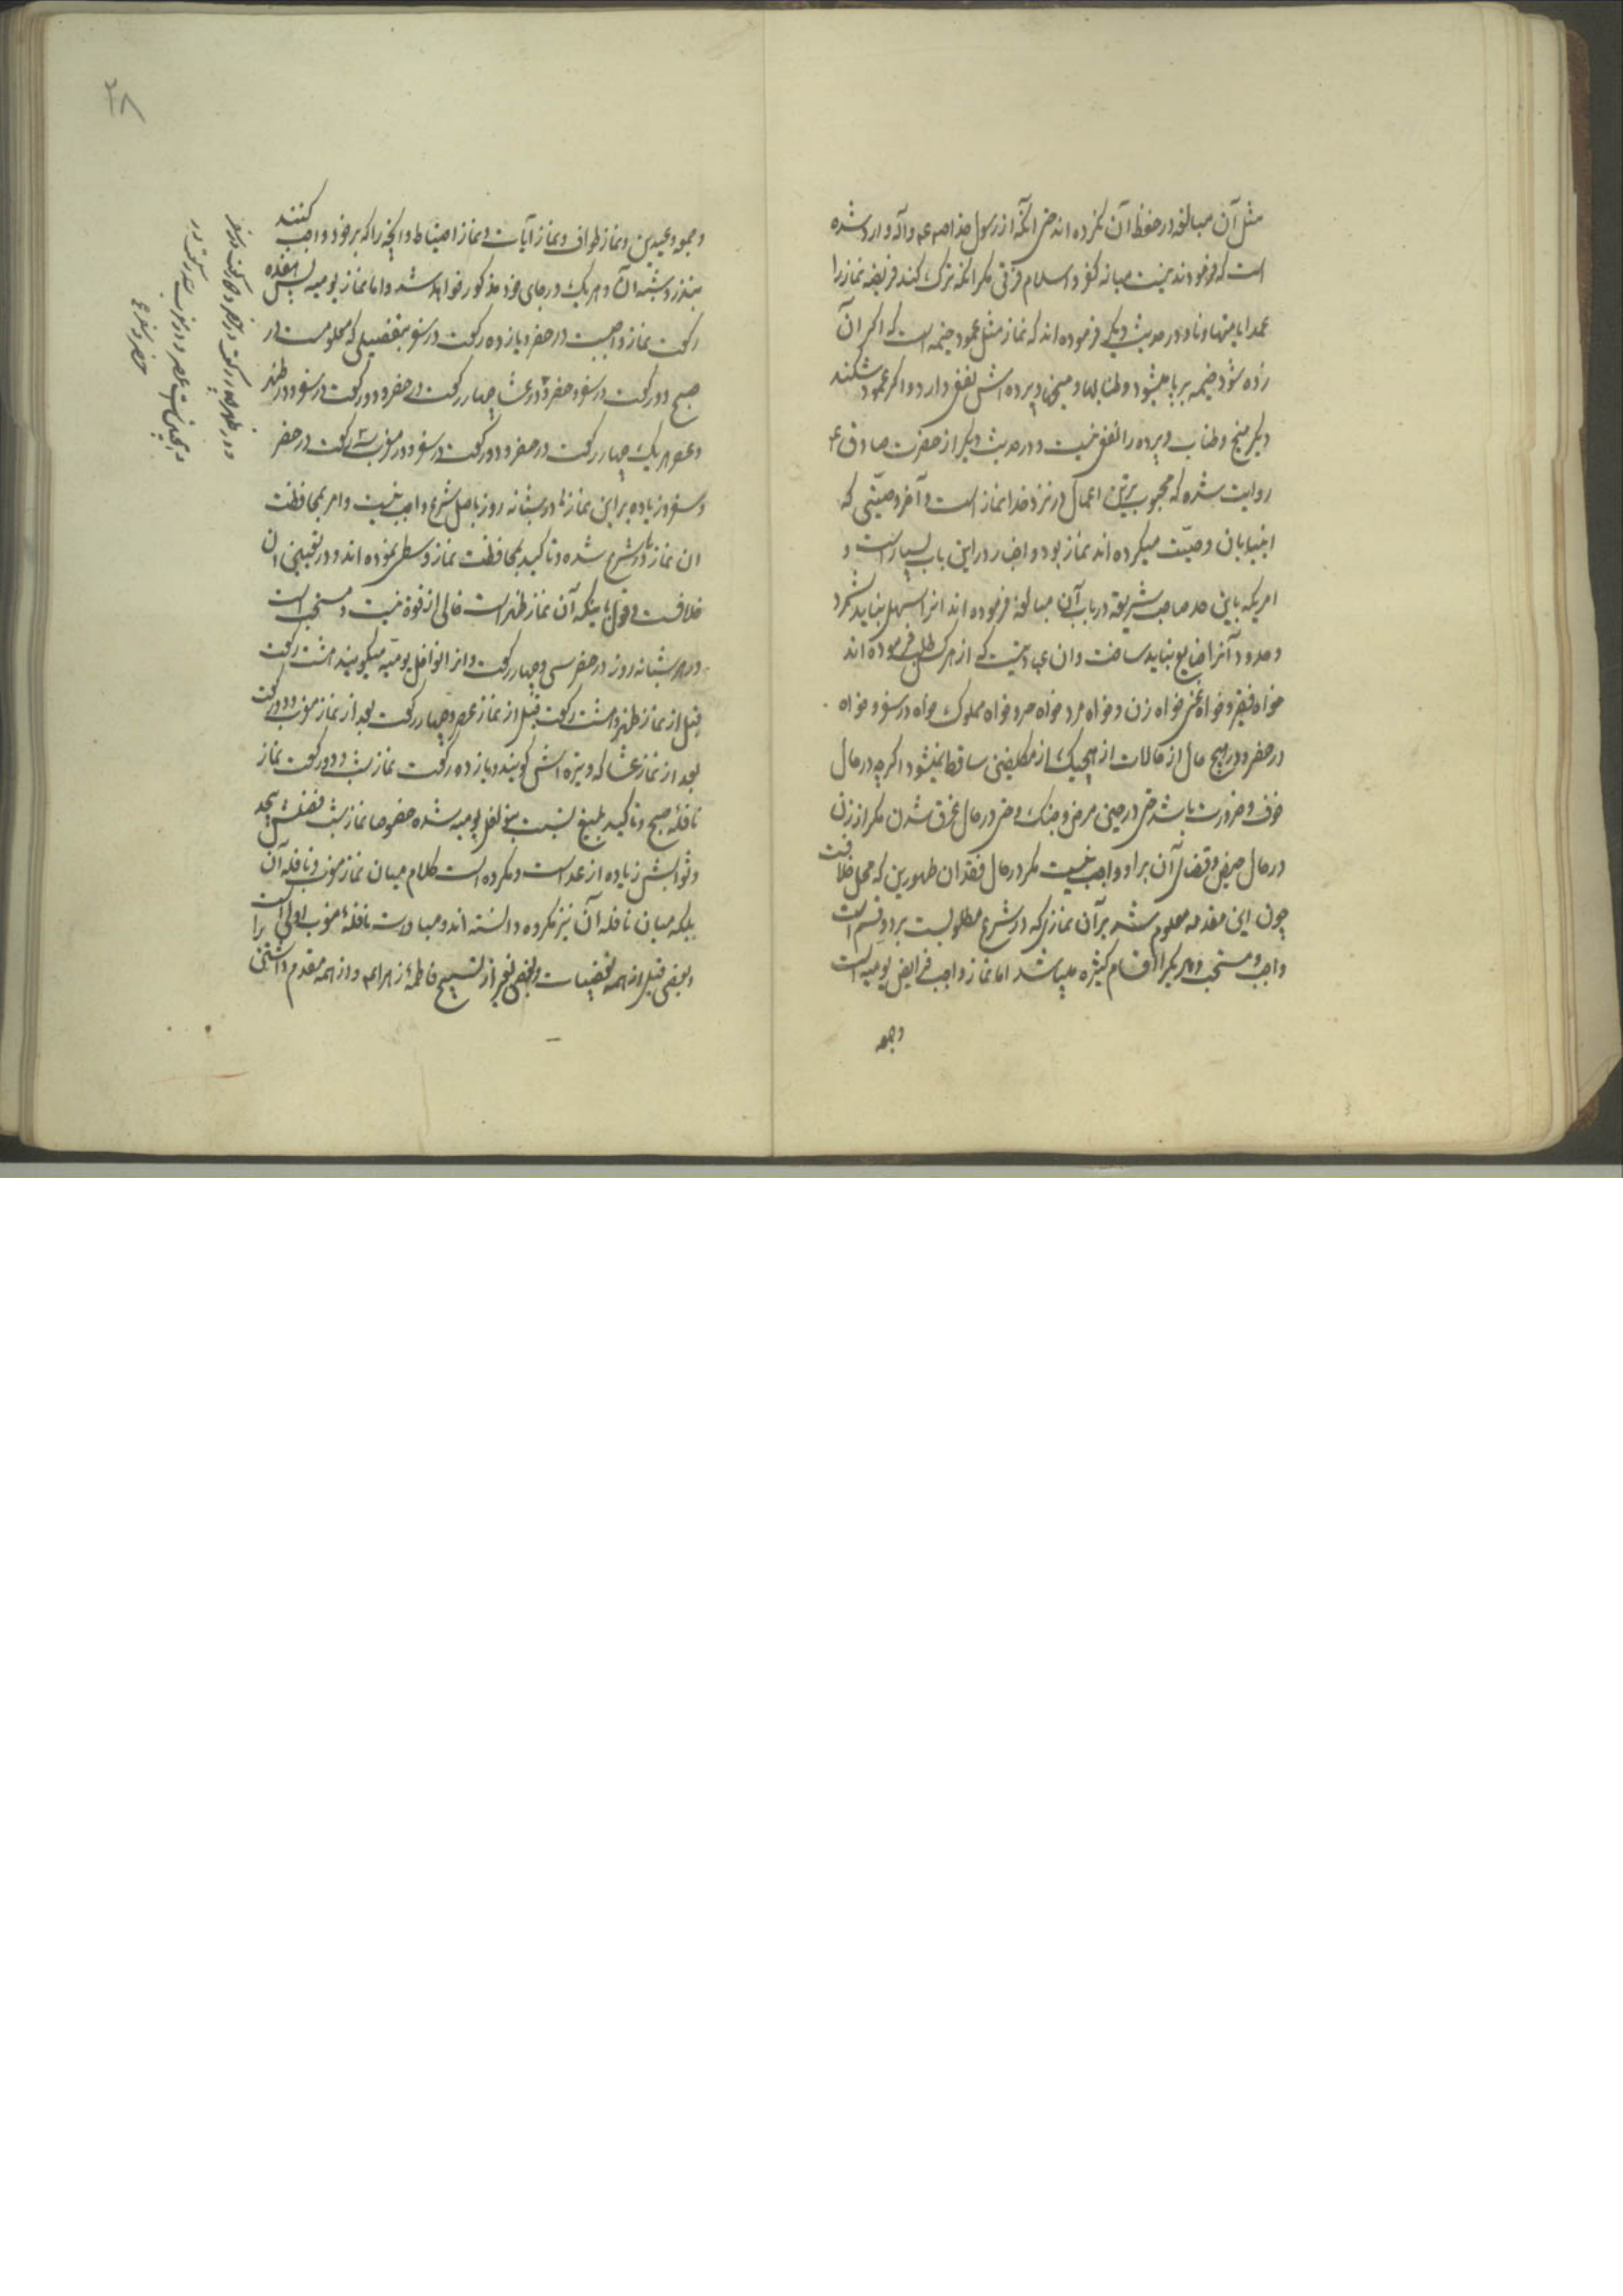 مثل آن مبالغه در حفظ آن نکرده اند حتی آنکه از رسول خدا صلعم وآله وارد شده
است که فرمودند نیست میانه کفر و اسلام فرقی مکر انکه ترک کند فریضه نماز را
عمدا یا متهاونا و در حدیث دیکر فرموده اند که نماز مثل عمود خیمه است که اکر آن
زده شود خیمه برپا میشود و طنابها و میخ و پرده اش نفع دارد و اکر عمود شکند
دیکر میخ و طناب و پرده را نفع نیست و در حدیث دیکر از حضرت صادق ع
روایت شده که محبوب ترین اعمال در نزد خدا نماز است و آخر وصیتی که
انبیا بان وصیت میکرده اند نماز بود و اخبار در این باب بسیار است و
امریکه باین حد صاحب شریعة در باب آن مبالغه فرموده اند انرا سهل نباید شمرد
و حدود آنرا ضایع نباید ساخت و ان عبادتیست که از هر کس طلب فرموده اند
خواه فقیر و خواه غنی خواه زن و خواه مرد خواه حر و خواه مملوک خواه در سفر و خواه
در حضر و در هیچ حال از حالات از هیچیک از مکلفین ساقط نمیشود اکرچه در حال
خوف و ضرورت باشد حتی در حین مرض و جنک و حتی در حال غرق شدن مکر از زن
در حال حیض و قضای آن بر او واجب نیست مکر در حال فقدان طهورین که محل خلافت
چون این مقدمه معلوم شد بر آن نمازی که در شرع مطلوبست بر دو قسم است
واجب و مستحب و هر یک را اقسام کثیره میباشد اما نماز واجب فرایض یومیه است
وجمعه
۲۸
وجمعه وعیدین ونماز طواف ونماز آیات ونماز احتیاط وانچه را که بر خود واجب کنند
بنذر وشبه آن وهر یک در جای خود مذکور خواهد شد واما نماز یومیه پس هفده
رکعت نماز واجبست در حضر ویازده رکعت در سفر بتفصیلی که معلومست در
صبح دو رکعت در سفر وحضر ودر عشا چهار رکعت در حضر ودو رکعت در سفر ودر ظهر
وعصر هر یک چهار رکعت در حضر ودو رکعت در سفر ودر مغرب سه رکعت در حضر
وسفر وزیاده بر این نمازها در شبانه روز باصل شرع واجب نیست وامر بمحافظت
ان نمازها در شرع شده وتاکید بمحافظت نماز وسطی نموده اند ودر تعیین ان
خلافست وقول باینکه آن نماز ظهر است خالی از قوة نیست ومستحب است
در هر شبانه روز در حضر سی وچهار رکعت وانرا نوافل یومیه میکویند هشت رکعت
قبل از نماز ظهر وهشت رکعت قبل از نماز عصر وچهار رکعت بعد از نماز مغرب ودو رکعت
بعد از نماز عشا که وتیره اش کویند ویازده رکعت نماز شب ودو رکعت نماز
نافله صبح وتاکید بلیغ نسبت بنوافل یومیه شده خصوصا نماز شب فضلش بیحد
وثوابش زیاده از عد است ومکروه است کلام میان نماز مغرب ونافله آن
بلکه میان نافله آن نیز مکروه دانسته اند ومبادرت نافله مغرب اولی است
وبعضی قبل از همه تعقیبات وبعضی بغیر از تسبیح فاطمه زهرا ع واز همه مقدم داشتن را
ودر ظهر چهار رکعت در حضر ودو رکعت در سفر
وهمچنین است عصر ودر مغرب سه رکعت در
حضر وسفر